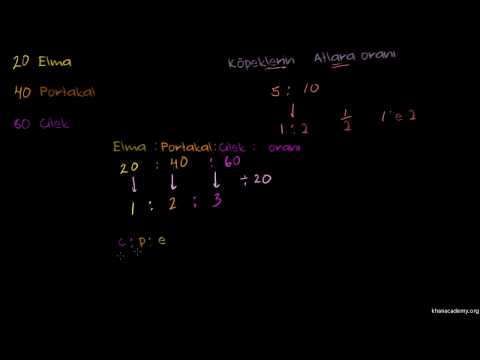 20 Elma
40 Portakal
60 Çilek
Köpeklerin Atlara oranı
5 : 10
1 : 2 1/2 1'e 2
Elma : Portakal : Çilek : oranı
20 : 40 : 60
÷20
1 : 2 : 3
ç : p : e
khanacademy.org